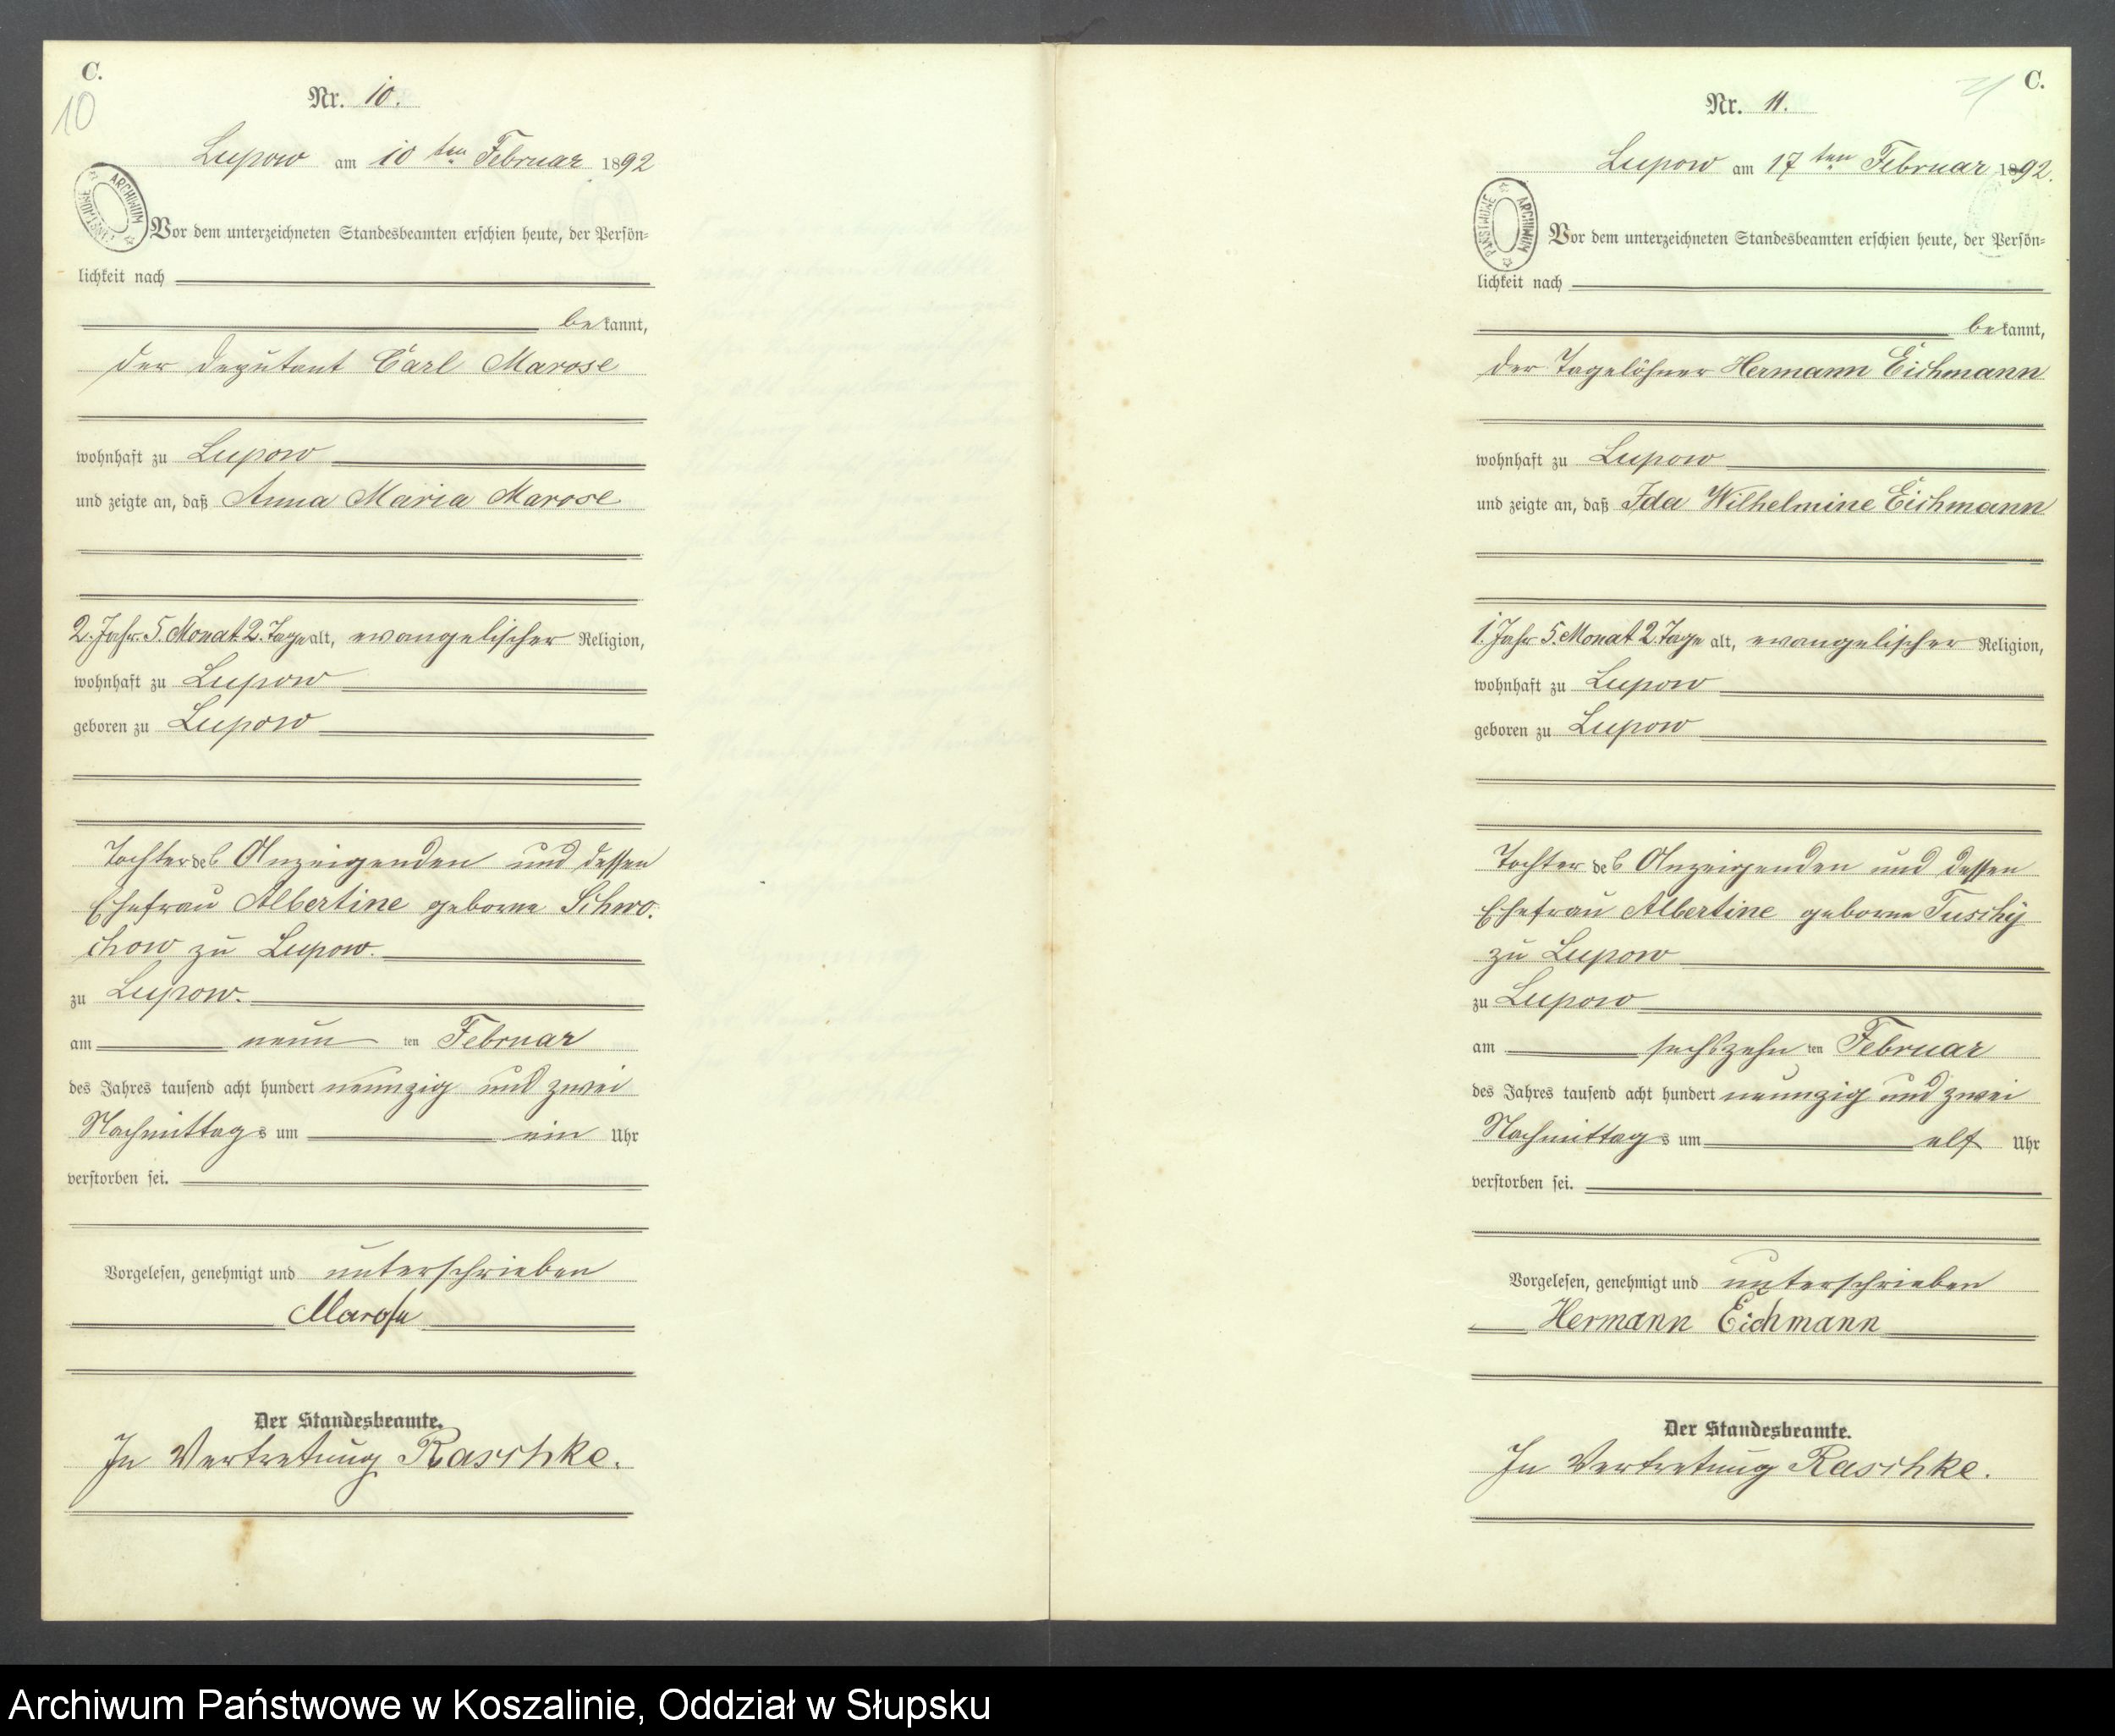 C.
10
Nr. 10.
Lupow am 10 ten Februar 1892
ARCHIWUM PAŃSTWOWE
Vor dem unterzeichneten Standesbeamten erschien heute, der Persön-
lichkeit nach
bekannt,
der Deputant Carl Marose
wohnhaft zu Lupow
und zeigte an, daß Anna Maria Marose
2. Jahr 5. Monat 2. Tage alt, evangelischer Religion,
wohnhaft zu Lupow
geboren zu Lupow
Tochter des Anzeigenden und dessen
Ehefrau Albertine geborne Schwo-
chow zu Lupow.
zu Lupow.
am neun ten Februar
des Jahres tausend acht hundert neunzig und zwei
Nachmittags um ein Uhr
verstorben sei.
Vorgelesen, genehmigt und unterschrieben
Marose
Der Standesbeamte.
In Vertretung Raschke.
C.
Nr. 11.
Lupow am 17 ten Februar 1892.
ARCHIWUM PAŃSTWOWE
Vor dem unterzeichneten Standesbeamten erschien heute, der Persön-
lichkeit nach
bekannt,
der Tagelöhner Hermann Eichmann
wohnhaft zu Lupow
und zeigte an, daß Ida Wilhelmine Eichmann
1. Jahr 5. Monat 2. Tage alt, evangelischer Religion,
wohnhaft zu Lupow
geboren zu Lupow
Tochter des Anzeigenden und dessen
Ehefrau Albertine geborne Tuschy
zu Lupow
zu Lupow
am sechszehn ten Februar
des Jahres tausend acht hundert neunzig und zwei
Nachmittags um elf Uhr
verstorben sei.
Vorgelesen, genehmigt und unterschrieben
Hermann Eichmann
Der Standesbeamte.
In Vertretung Raschke.
Archiwum Państwowe w Koszalinie, Oddział w Słupsku